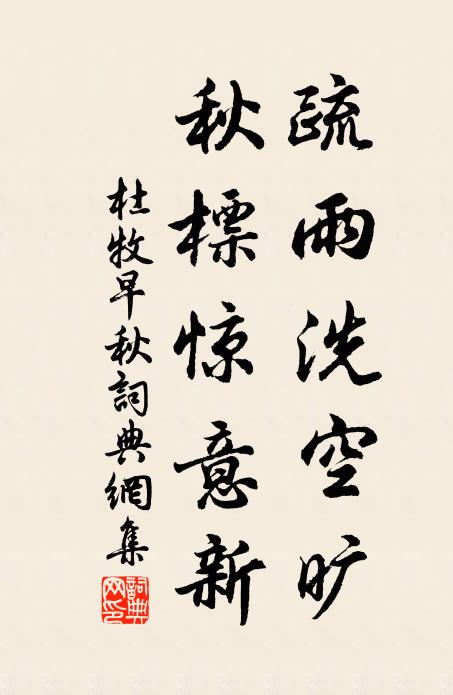 疏雨洗空旷
秋標惊意新
杜牧早秋詞典網集
詞典網印